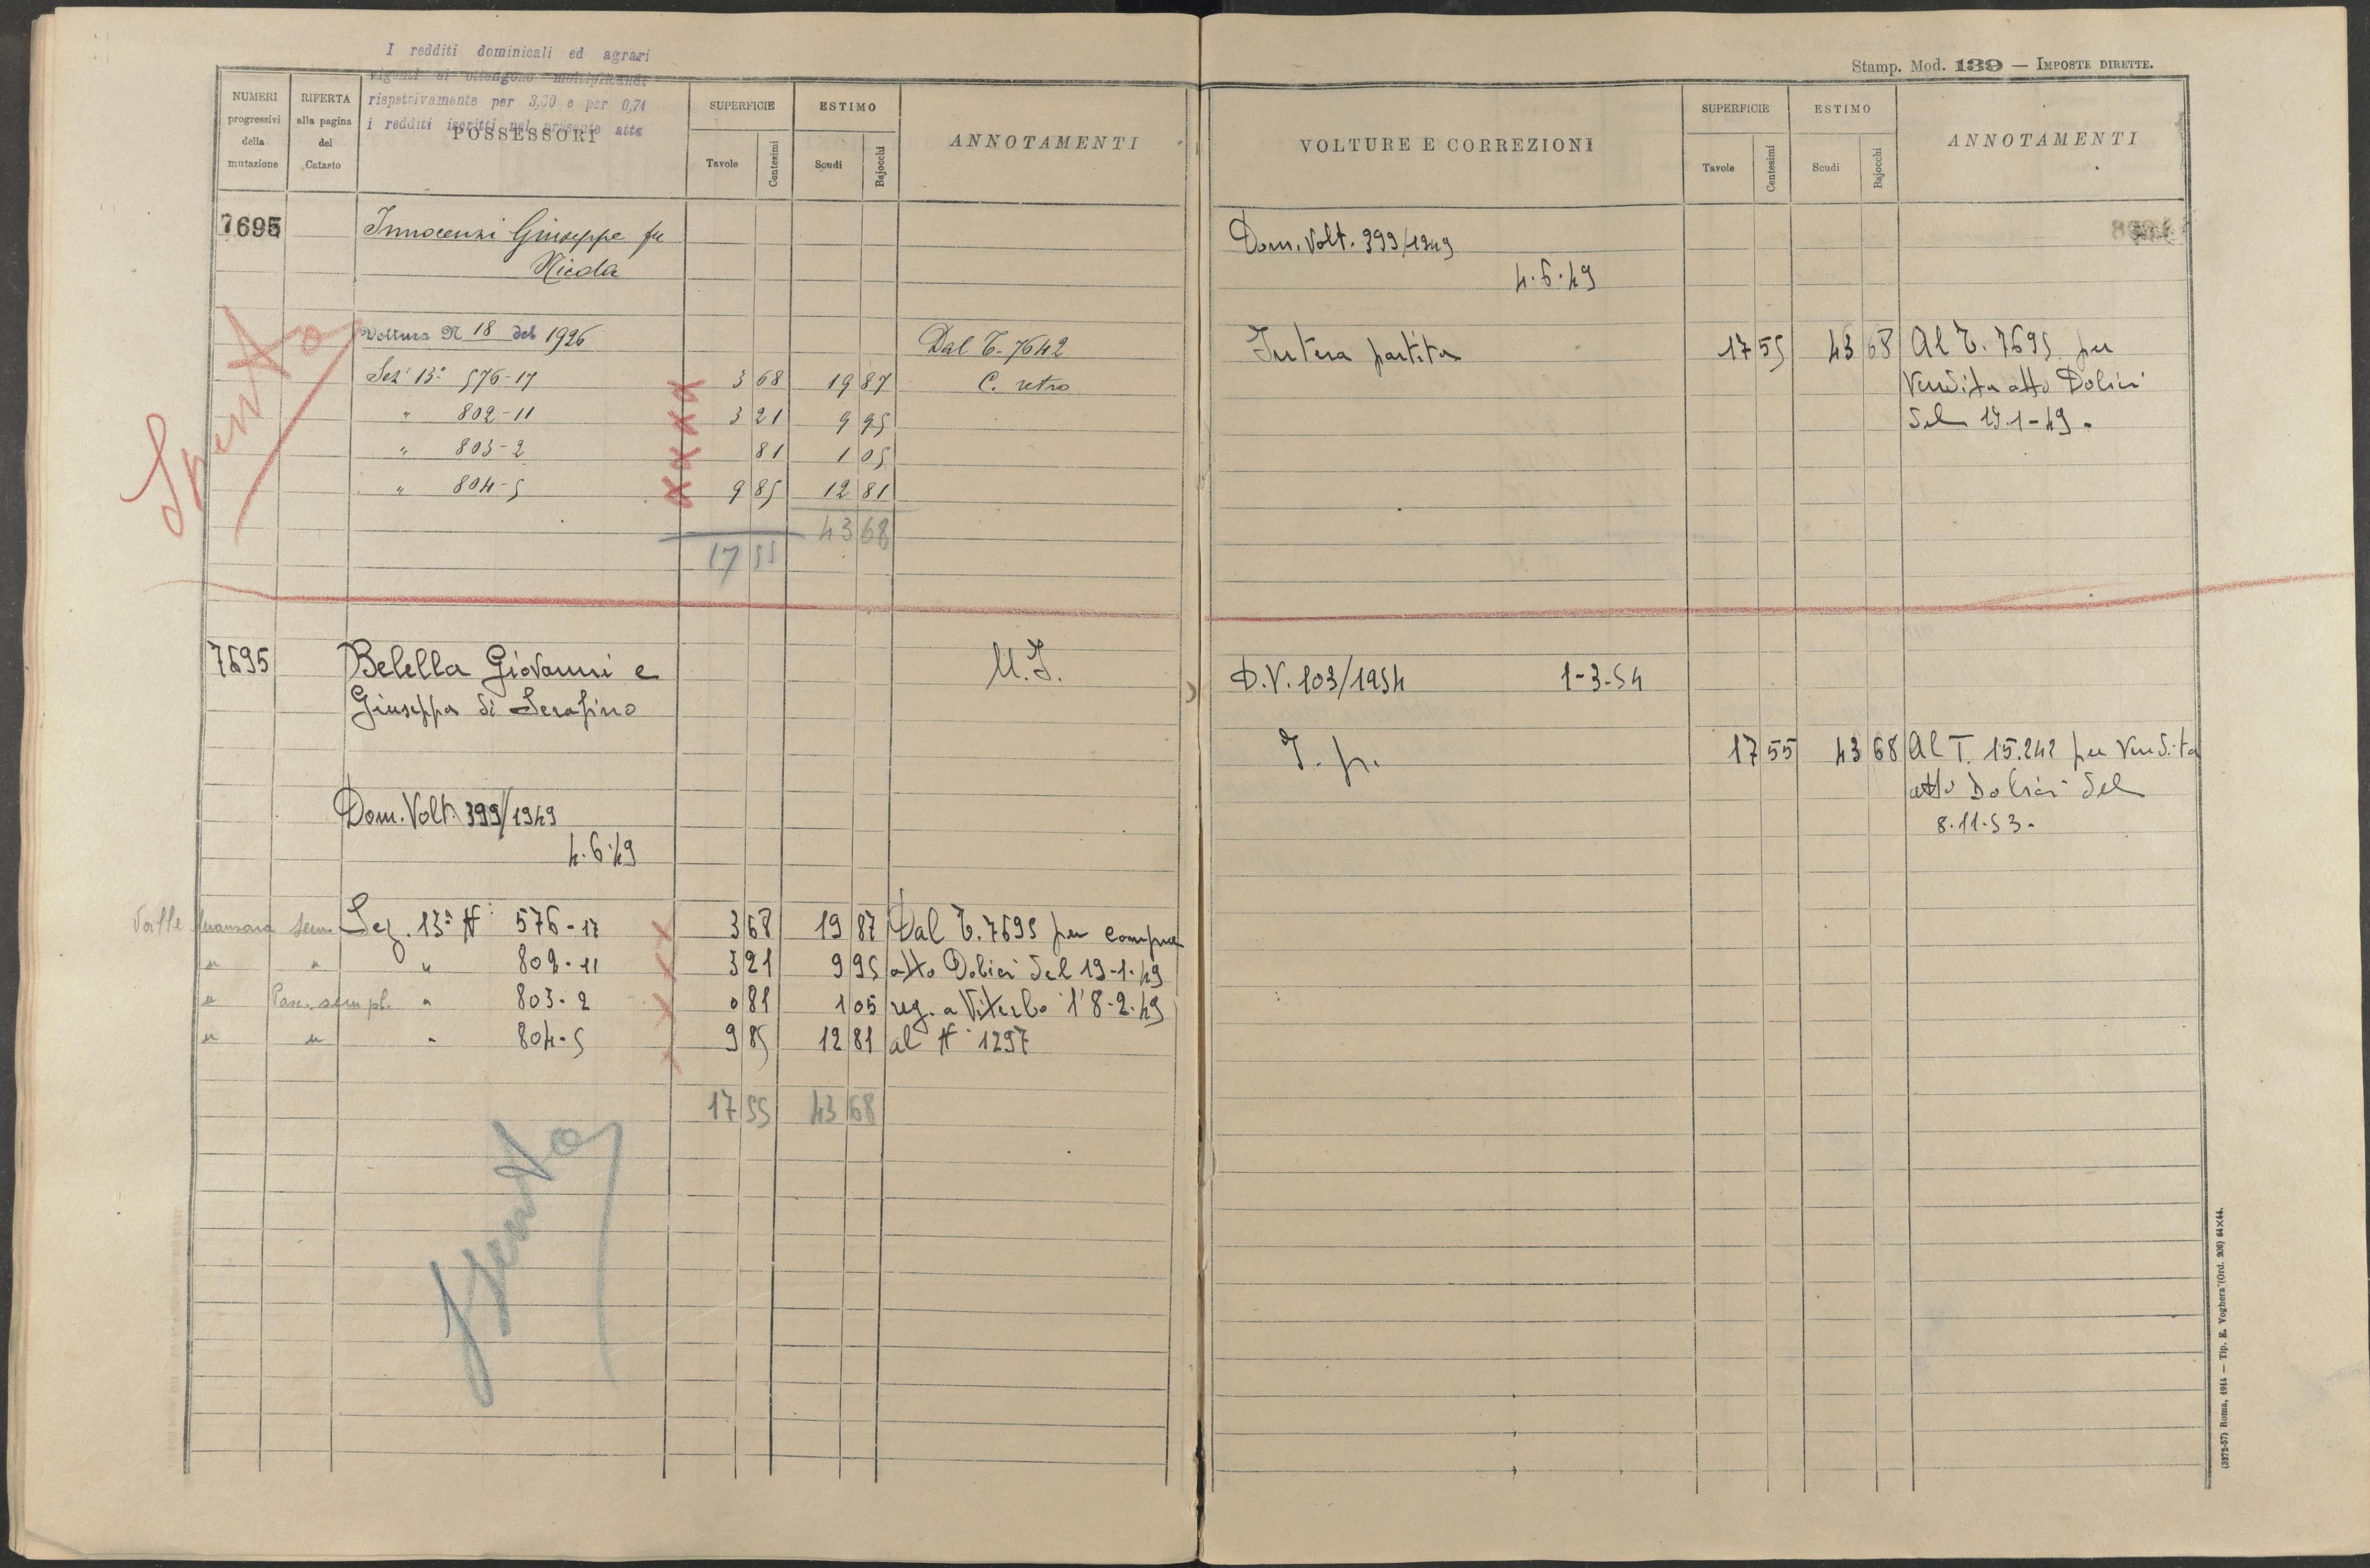 I redditi dominicali ed agrari
vigenti si ottengono moltiplicando
rispettivamente per 3,60 e per 0,74
i redditi iscritti nel presente atto
NUMERI progressivi della mutazione
RIFERTA alla pagina del Catasto
POSSESSORI
SUPERFICIE
Tavole Centesimi
ESTIMO
Scudi Bajocchi
ANNOTAMENTI
7695 Innocenzi Giuseppe fu
Nicola
Voltura N 18 del 1926 Dal T. 7642
Sez 13ª 576-17 3 68 19 87 C. retro
" 802-11 3 21 9 95
" 803-2 81 1 05
" 804-5 9 85 12 81
43 68
17 55
Spento
7695 Belella Giovanni e M.I.
Giuseppa di Serafino
Dom. Volt. 399/1949
4.6.49
Valle sem. Sez. 13ª N 576-17 3 68 19 87 Dal T. 7695 per compra
" " " 802-11 3 21 9 95 atto Dolici del 19-1-49
" Pasc. sempl. " 803-2 0 81 1 05 reg. a Viterbo l'8-2-49
" " " 804-5 9 85 12 81 al N 1297
17 55 43 68
Spento
Stamp. Mod. 139 — IMPOSTE DIRETTE.
VOLTURE E CORREZIONI
SUPERFICIE
Tavole Centesimi
ESTIMO
Scudi Bajocchi
ANNOTAMENTI
Dom. Volt. 399/1949
4.6.49
Intera partita 17 55 43 68 Al T. 7695 per
Vendita atto Dolici
del 19.1-49.
D.V. 103/1954 1-3-54
I. p. 17 55 43 68 Al T. 15.242 per Vendita
atto Dolici del
8.11.53.
(3272-57) Roma, 1914 — Tip. E. Voghera (Ord. 206) 64×44.